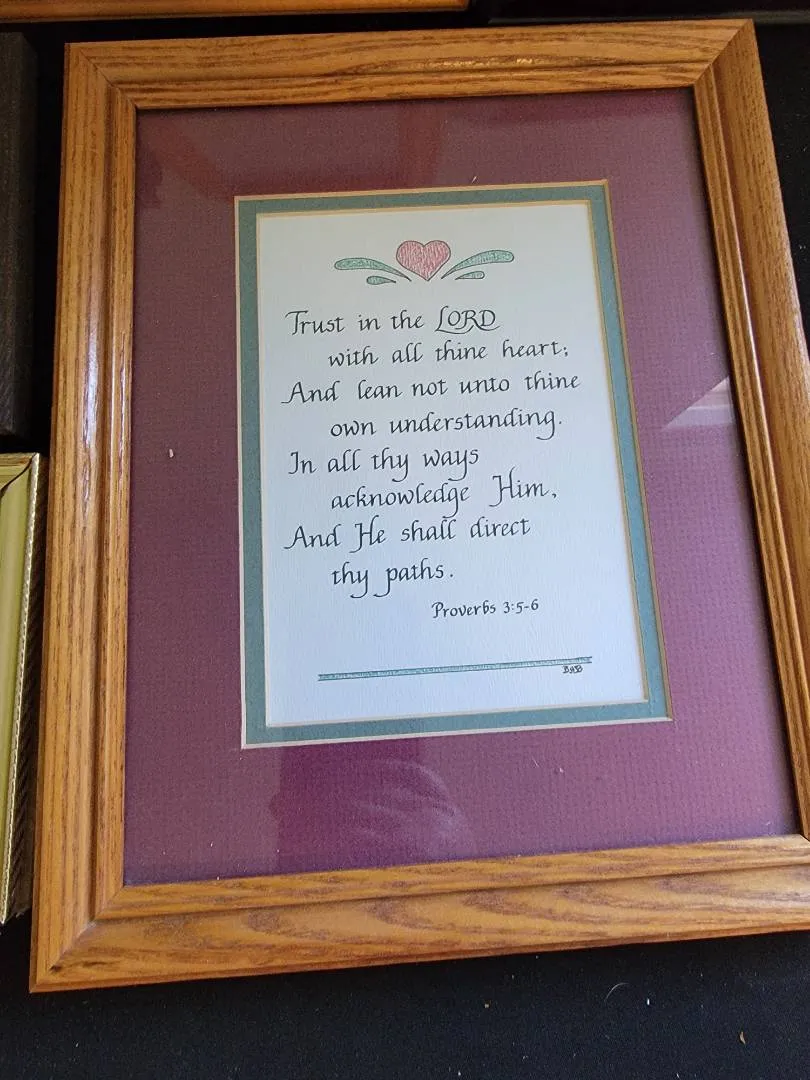 Trust in the LORD
with all thine heart;
And lean not unto thine
own understanding.
In all thy ways
acknowledge Him,
And He shall direct
thy paths.
Proverbs 3:5-6